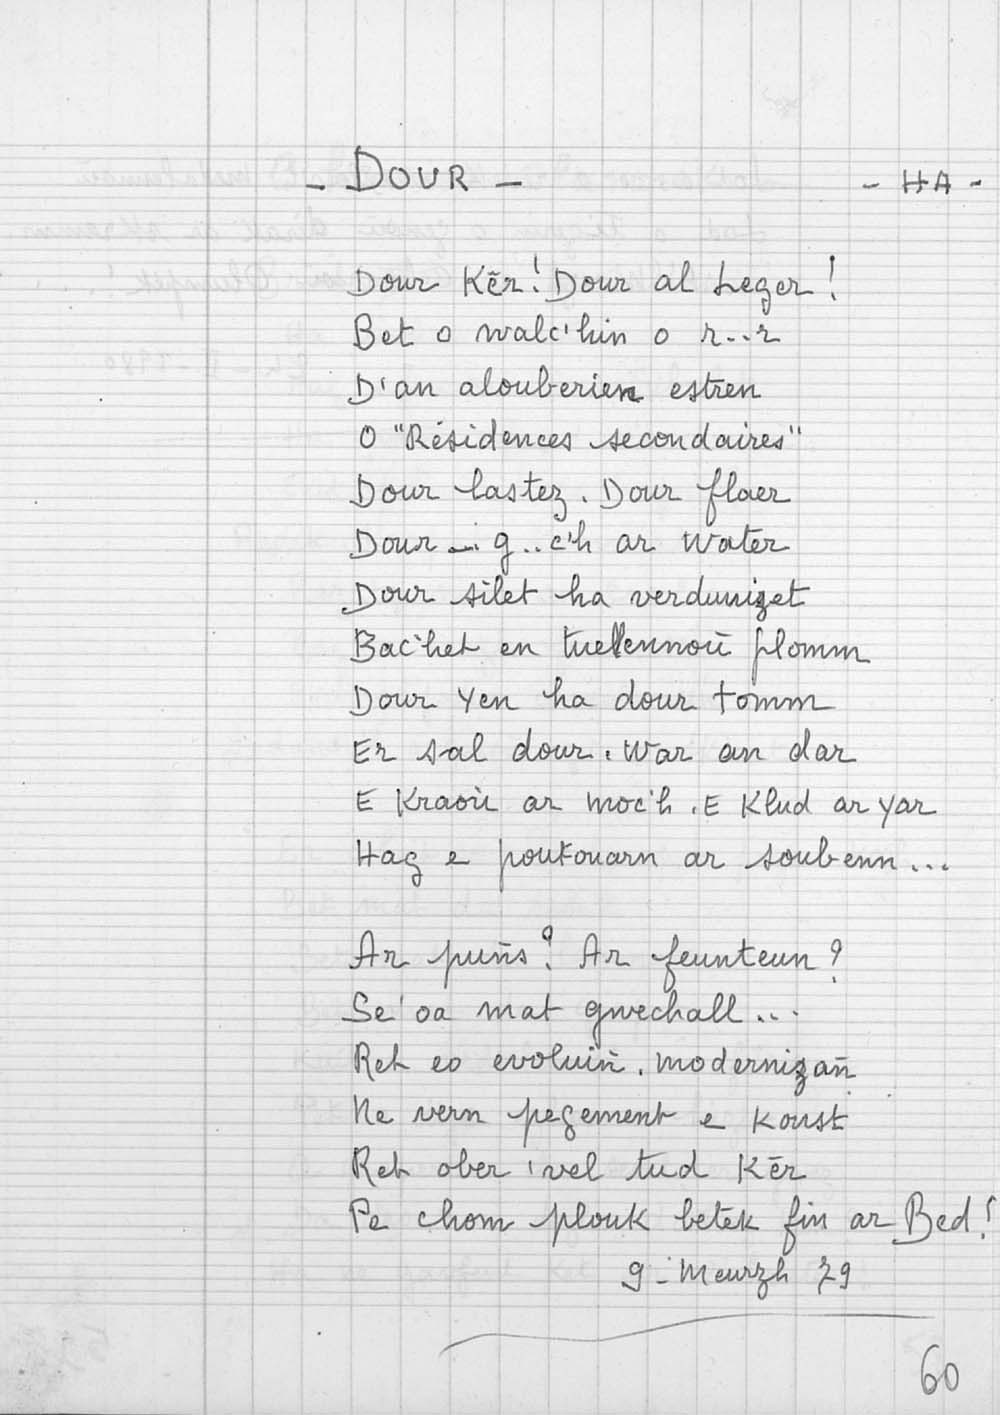 - DOUR - - HA -
Dour Kēr! Dour al Leger!
Bet o walc'hin o r...r
D'an alouberien estren
O "Résidences secondaires"
Dour lastez. Dour flaer
Dour ... g..c'h ar Water
Dour silet ha verdunizet
Bac'het en tuellennoù plomm
Dour yen ha dour tomm
Er sal dour. War an dar
E Kraoù ar moc'h. E Klud ar yar
Hag e poutouarn ar soubenn...
Ar puñs? Ar feunteun?
Se 'oa mat gwechall...
Ret eo evoluiñ. Modernizañ
Ne vern pegement e koust
Ret ober 'vel tud Kēr
Pe chom plouk betek fin ar Bed!
9 - Meurzh 79
60